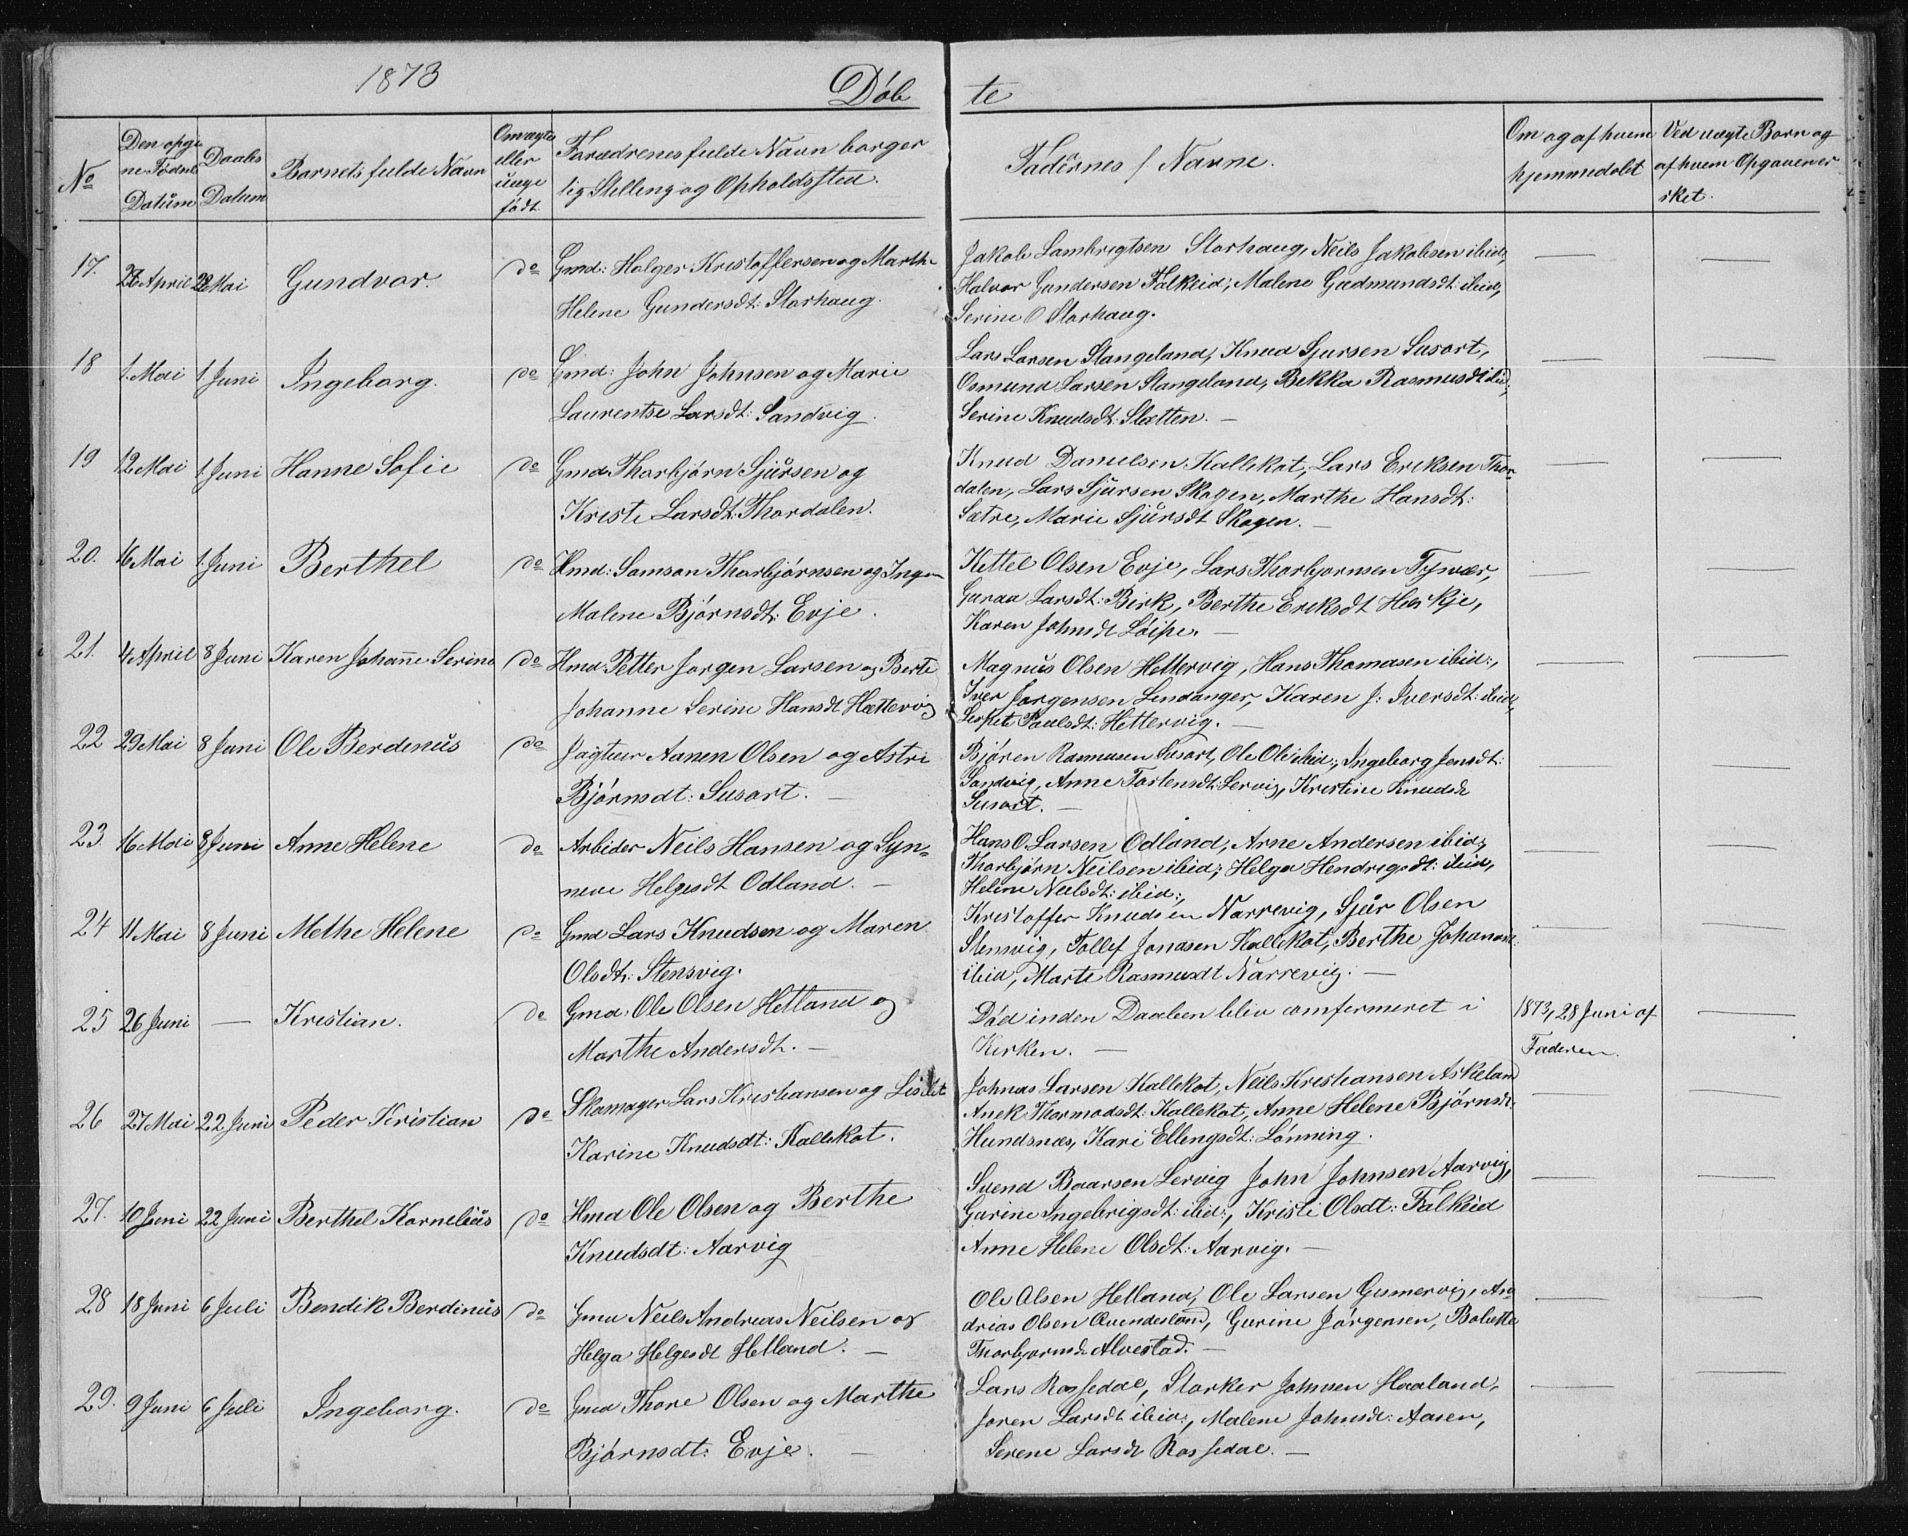 1873
Døb te
No
Den opgi
ne Fødsel
Datum
Daabs
Datum
Barnets fulde Navn
Om ægte
eller
uæge
født
Forædrenes fulde Navn borger
lig Stelling og Opholdssted.
Fadernes / Navne.
Om og af hvem
hjemmedøbt
Ved uægte Born og
af hvem Opgaven er
sket.
17. April Mai Gundvor. do Gmd: Holger Kristoffersen og Marthe
Helene Gundersdt: Storhaug.
Jakob Lambregtsen Storhaug, Neils Jakobsen ibid,
Halvor Gundersen Falkeid, Malene Gudmundsdt: ibid,
Serine O Storhaug.
18 1. Mai 1 Juni Ingeborg. do Gmd: John Johnsen og Marie
Laurentse Larsdt: Sandvig.
Lars Larsen Stangeland, Knud Sjursen Susort,
Osmund Larsen Stangeland, Bekka Rasmusdt ibid,
Serine Knudsdt: Sletten. —
19 12 Mai 1. Juni Hanne Sofie do Gmd. Thorbjørn Sjursen og
Kriste Larsdt: Thordalen.
Knud Danielsen Kallekot, Lars Eriksen Thor-
dalen, Lars Sjursen Skogen, Marthe Hansdt:
Sætre, Marie Sjursdt Skogen. —
20. 16 Mai 1. Juni Berthel do Hmd: Samson Thorbjørnsen og Inge
Malene Bjørnsdt: Evje.
Kettel Olsen Evje, Lars Thorbjornsen Tysvær,
Guraa Larsdt: Birk, Berthe Eriksdt Heskje,
Karen Johnsdt Løipe. —
21. 4 April 8 Juni Karen Johanne Serine do Hmd: Petter Jorgen Larsen og Berte
Johanne Serine Hansdt Hættevig
Magnus Olsen Hettervig, Hans Thomasen ibid:,
Iver Jorgensen Lindanger, Karen J: Iversdt: ibid,
Paulsdt: Hettervig. —
22 29 Mai 8 Juni Ole Berdinus do Jagtuer Aanen Olsen og Astri
Bjørnsdt: Susort. —
Bjøren Rasmusen Susort, Ole Ols ibid:, Ingeborg Jensdt:
Sandvig, Anne Torbensdt: Lervig, Kristine Knudsdt
Susort. —
23 16 Mai 8 Juni Anne Helene do Arbider Neils Hansen og Syn-
neve Helgesdt Odland. —
Hans O. Larsen Odland, Arne Andersen ibid;
Thorbjørn Neilsen ibid; Helga Hendrigsdt: ibid,
Heline Neilsdt: ibid:,
24 11 Mai 8 Juni Methe Helene do Gmd Lars Knudsen og Maren
Olsdt: Stensvig.
Kristoffer Knudsen Narrevig, Sjur Olsen
Stensvig, Tollef Jonasen Kallekot, Berthe Johanne
ibid, Marte Rasmusdt Narrevig. —
25 26 Juni — Kristian. do Gmd: Ole Olsen Hetland og
Marthe Andersdt. —
Død inden Daaben blev comfermeret i
Kirken. —
1873, 28 Juni af
Faderen.
26 27 Mai 22 Juni Peder Kristian do Skomager Lars Kristiansen og
Karine Knudsdt: Kallekot.
Johnas Larsen Kallekot, Neils Kristiansen Askeland
Anek Thormodsdt: Kallekot, Anne Helene Bjørnsdt.
Hundsnæs, Kari Ellengsdt: Lønning.
27. 10 Juni 22 Juni Berthel Kornelius do Hmd Ole Olsen og Berthe
Knudsdt: Aarvig
Svend Baarsen Lervig John Johnsen Aarvig,
Gurine Ingebrigsdt: ibid:, Kristi Olsdt: Falkeid
Anne Helene Olsdt: Aarvig. —
28 18 Juni 6 Juli Bendik Berdinus do Gmd Neils Andreas Neilsen og
Helga Helgesdt Hetland. —
Ole Olsen Hetland, Ole Larsen Gismervig, An-
drias Olsen Qvendesland, Gurine Jørgensen, Bolette
Thorbjørnsdt Alvestad. —
29. 9 Juni 6 Juli Ingeborg. do Gmd Thore Olsen og Marthe
Bjørnsdt: Evje. —
Lars Rossedal, Storker Johnsen Haaland,
Joren Larsdt ibid:, Malene Johnsdt: Aasen,
Serene Larsdt Rossedal. —